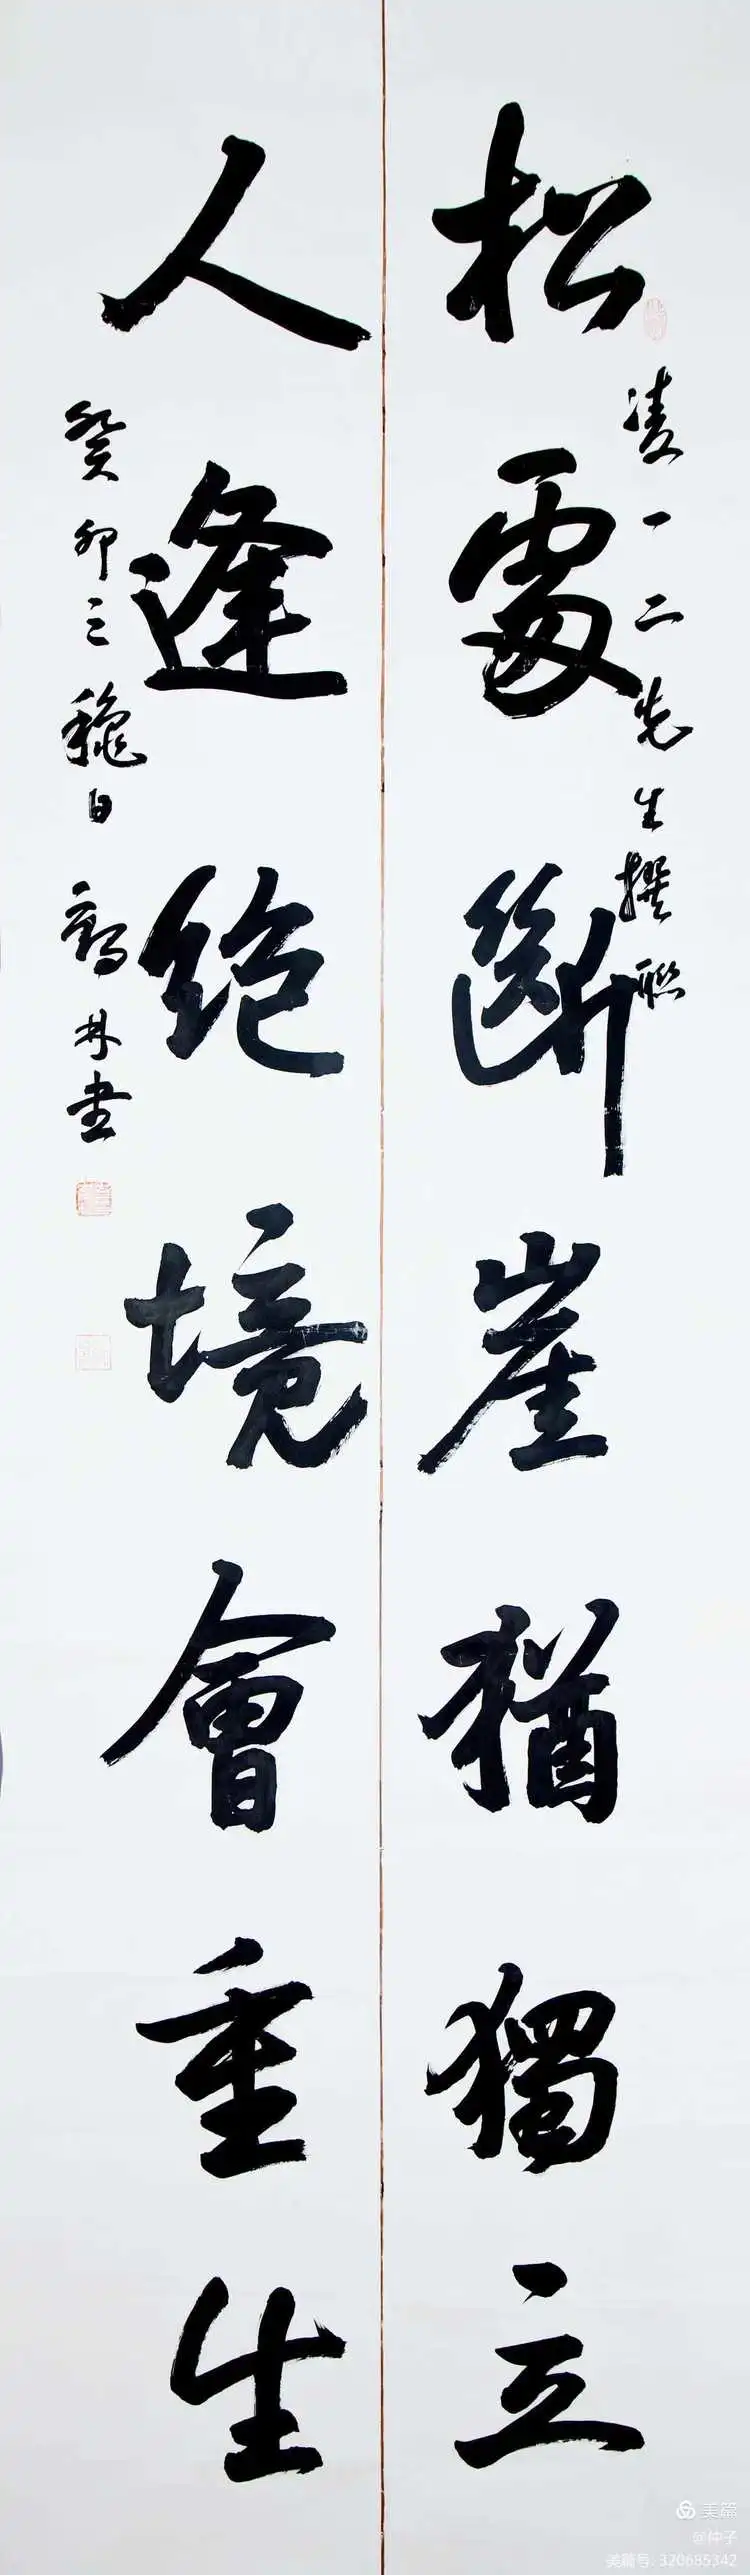 松處斷崖猶獨立
凌一二先生撰聯
人逢絕境會重生
癸卯三穐日 書
美篇
@仲子
美篇号: 320685342